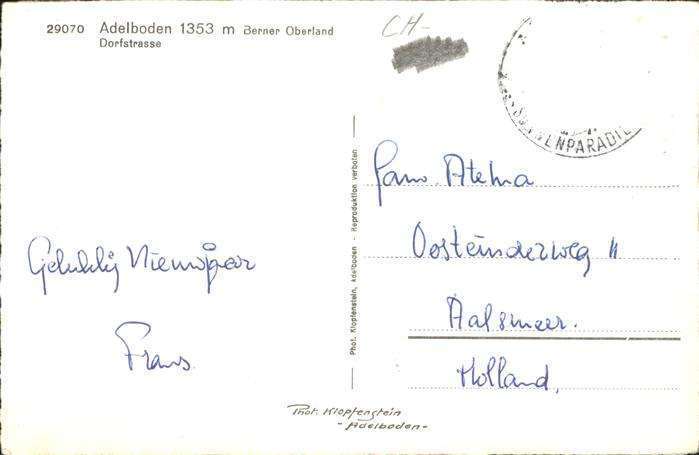 29070 Adelboden 1353 m Berner Oberland
Dorfstrasse
CH-
ENPARADI
Gelukkig Nieuwjaar
Frans
Phot. Klopfenstein, Adelboden - Reproduktion verboten
Fam. Atema
Oosteinderweg 11
Aalsmeer.
Holland.
Phot. Klopfenstein
- Adelboden -